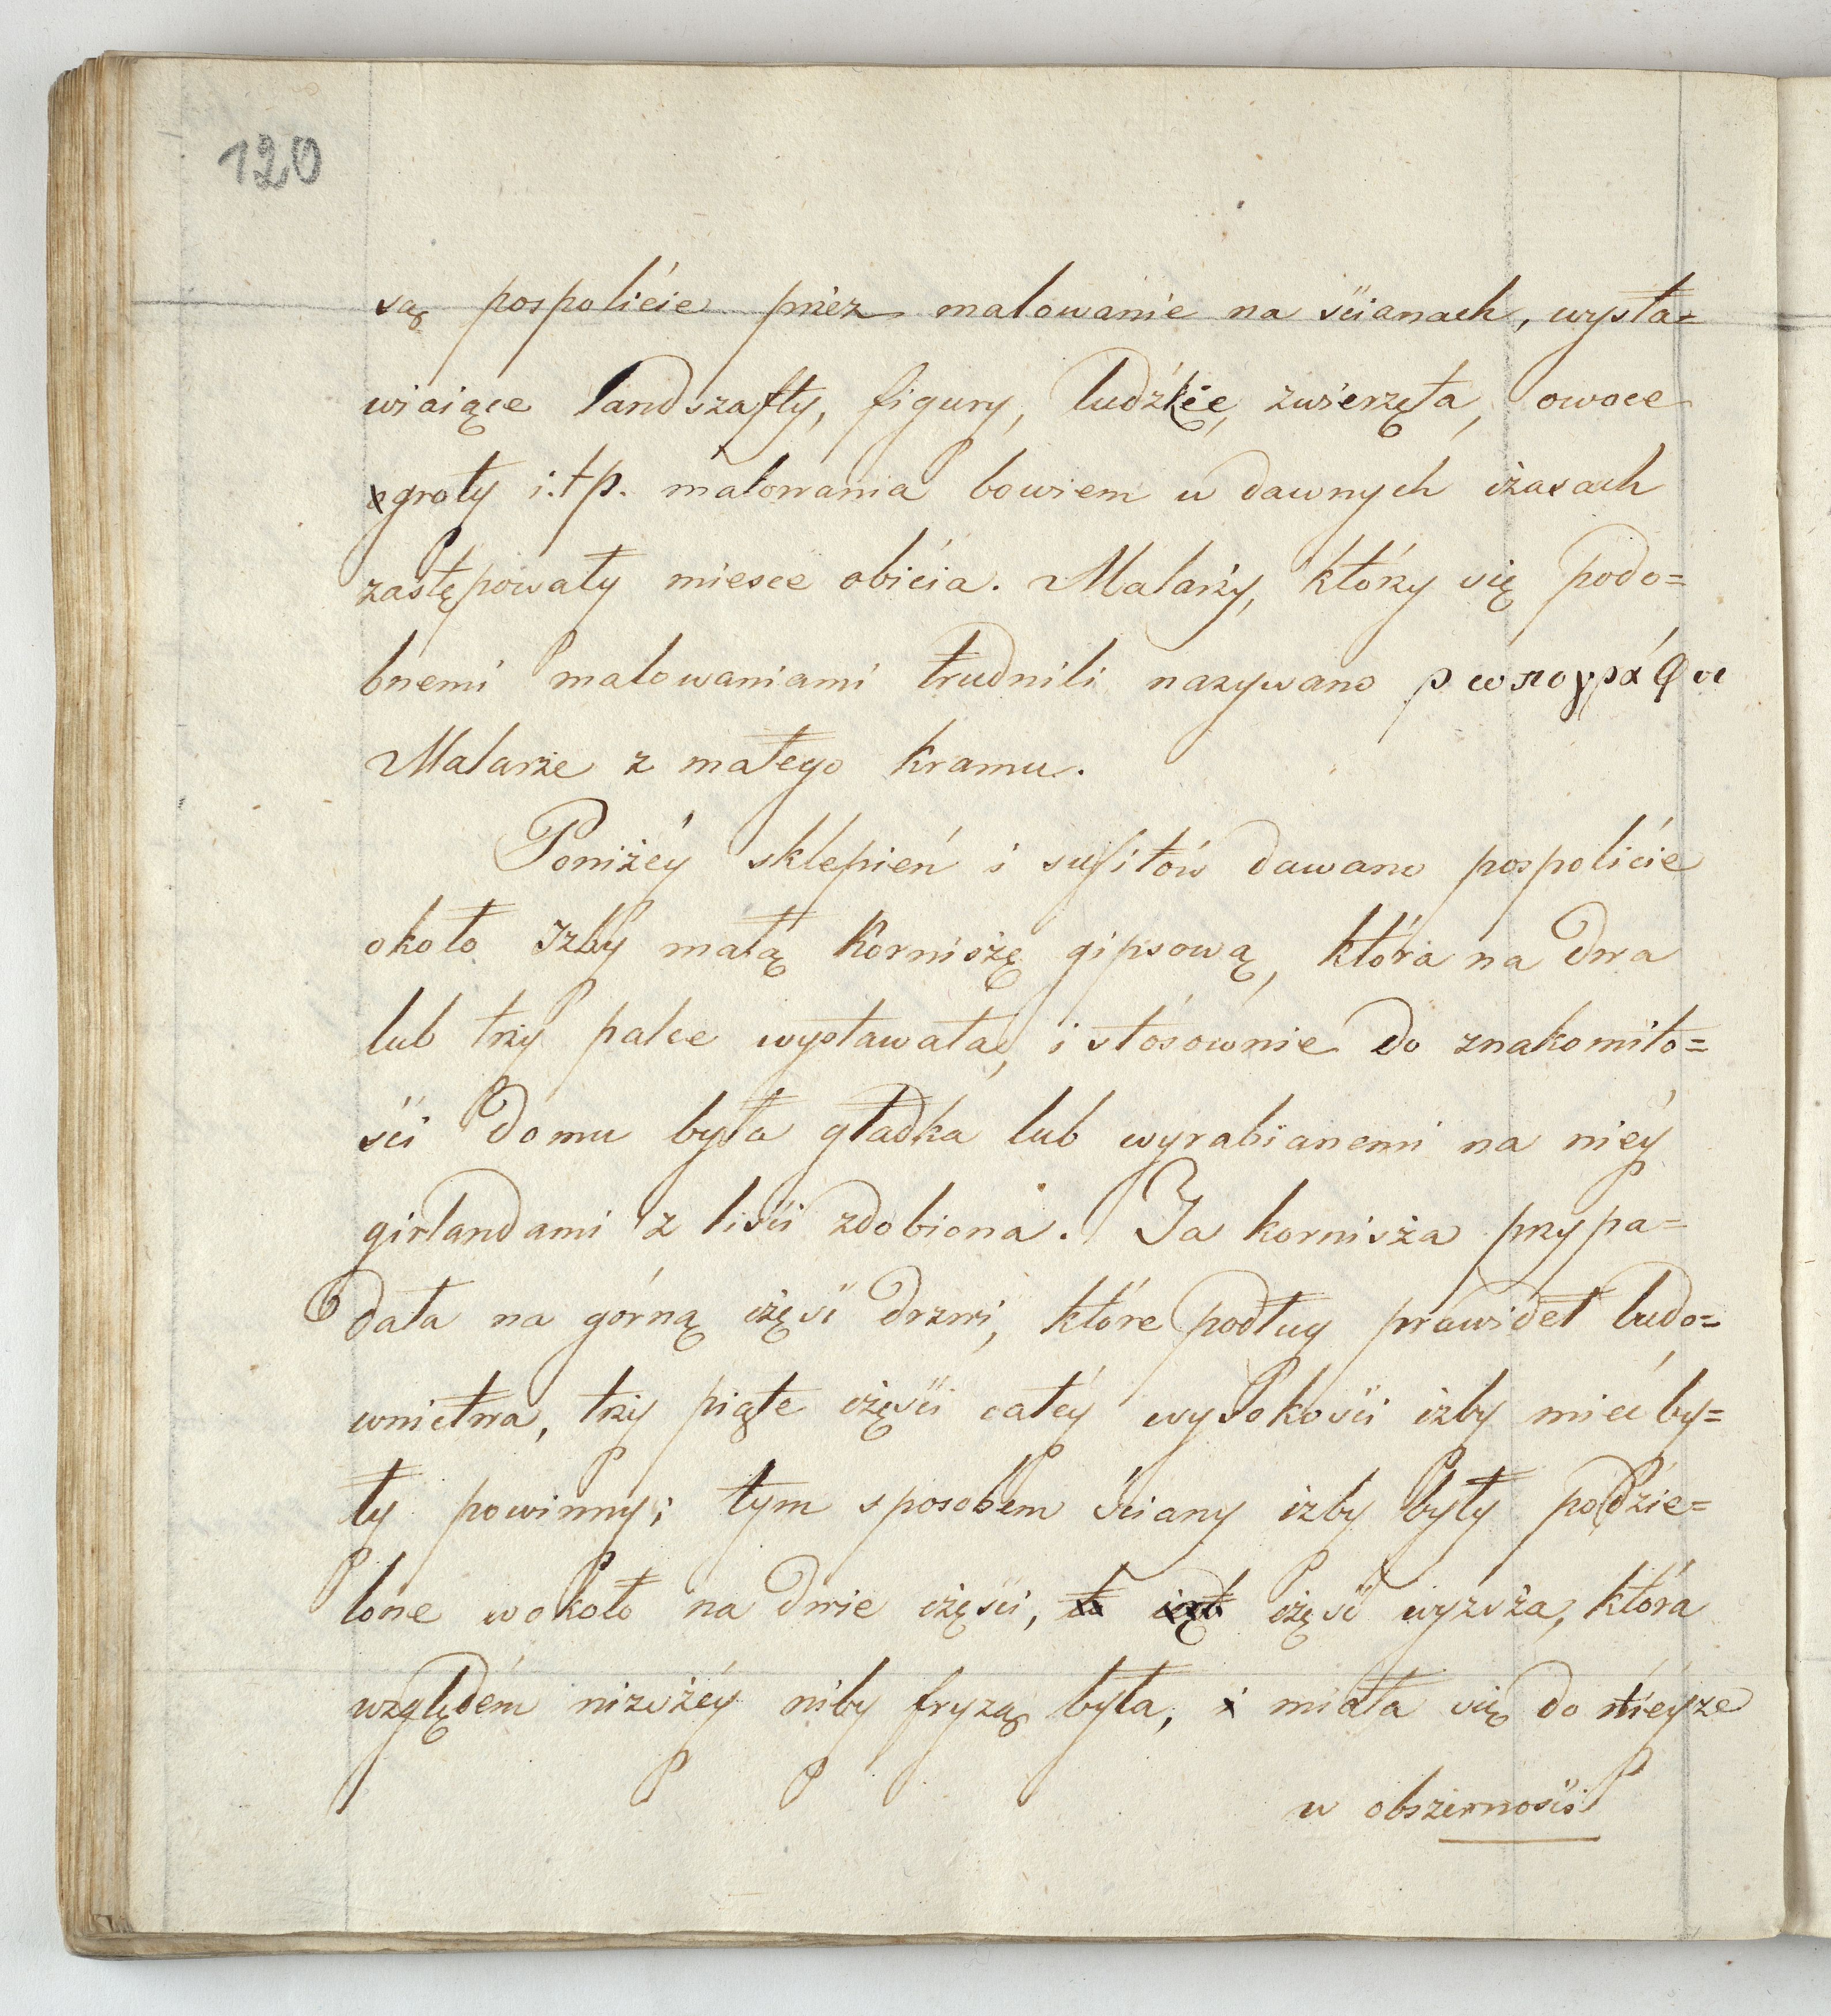 120
są pospolićie przez malowanie na ścianach, wysta=
wiaiące landszafty, figury, ludźkie, zwierzęta, owoce
groty i.t.p. malowania bowiem w dawnych czasach
zastępowały miesce obićia. Malarzy, którzy się podo=
bnemi malowaniami trudnili nazywano ρωπογράφοι
Malarze z małego kramu.
Poniżéy sklepień i sufitów dawano pospolićie
około Izby małą Korniszę gipsową, która na dwa
lub trzy palce wystawała, i stósownie do znakomito=
ści domu była gładka lub wyrabianemi na niéy
girlandami z liści zdobiona. Ta kornisza przypa=
dała na górną część drzwi, które podług prawideł budo=
wnictwa, trzy piąte części całéy wysokości izby mieć by=
ły powinny; tym sposobem ściany izby były podzie=
lone wokoło na dwie części, część wyzsza, która
względem nizszéy niby fryzą była, i miała się do niéyze
w obszerności